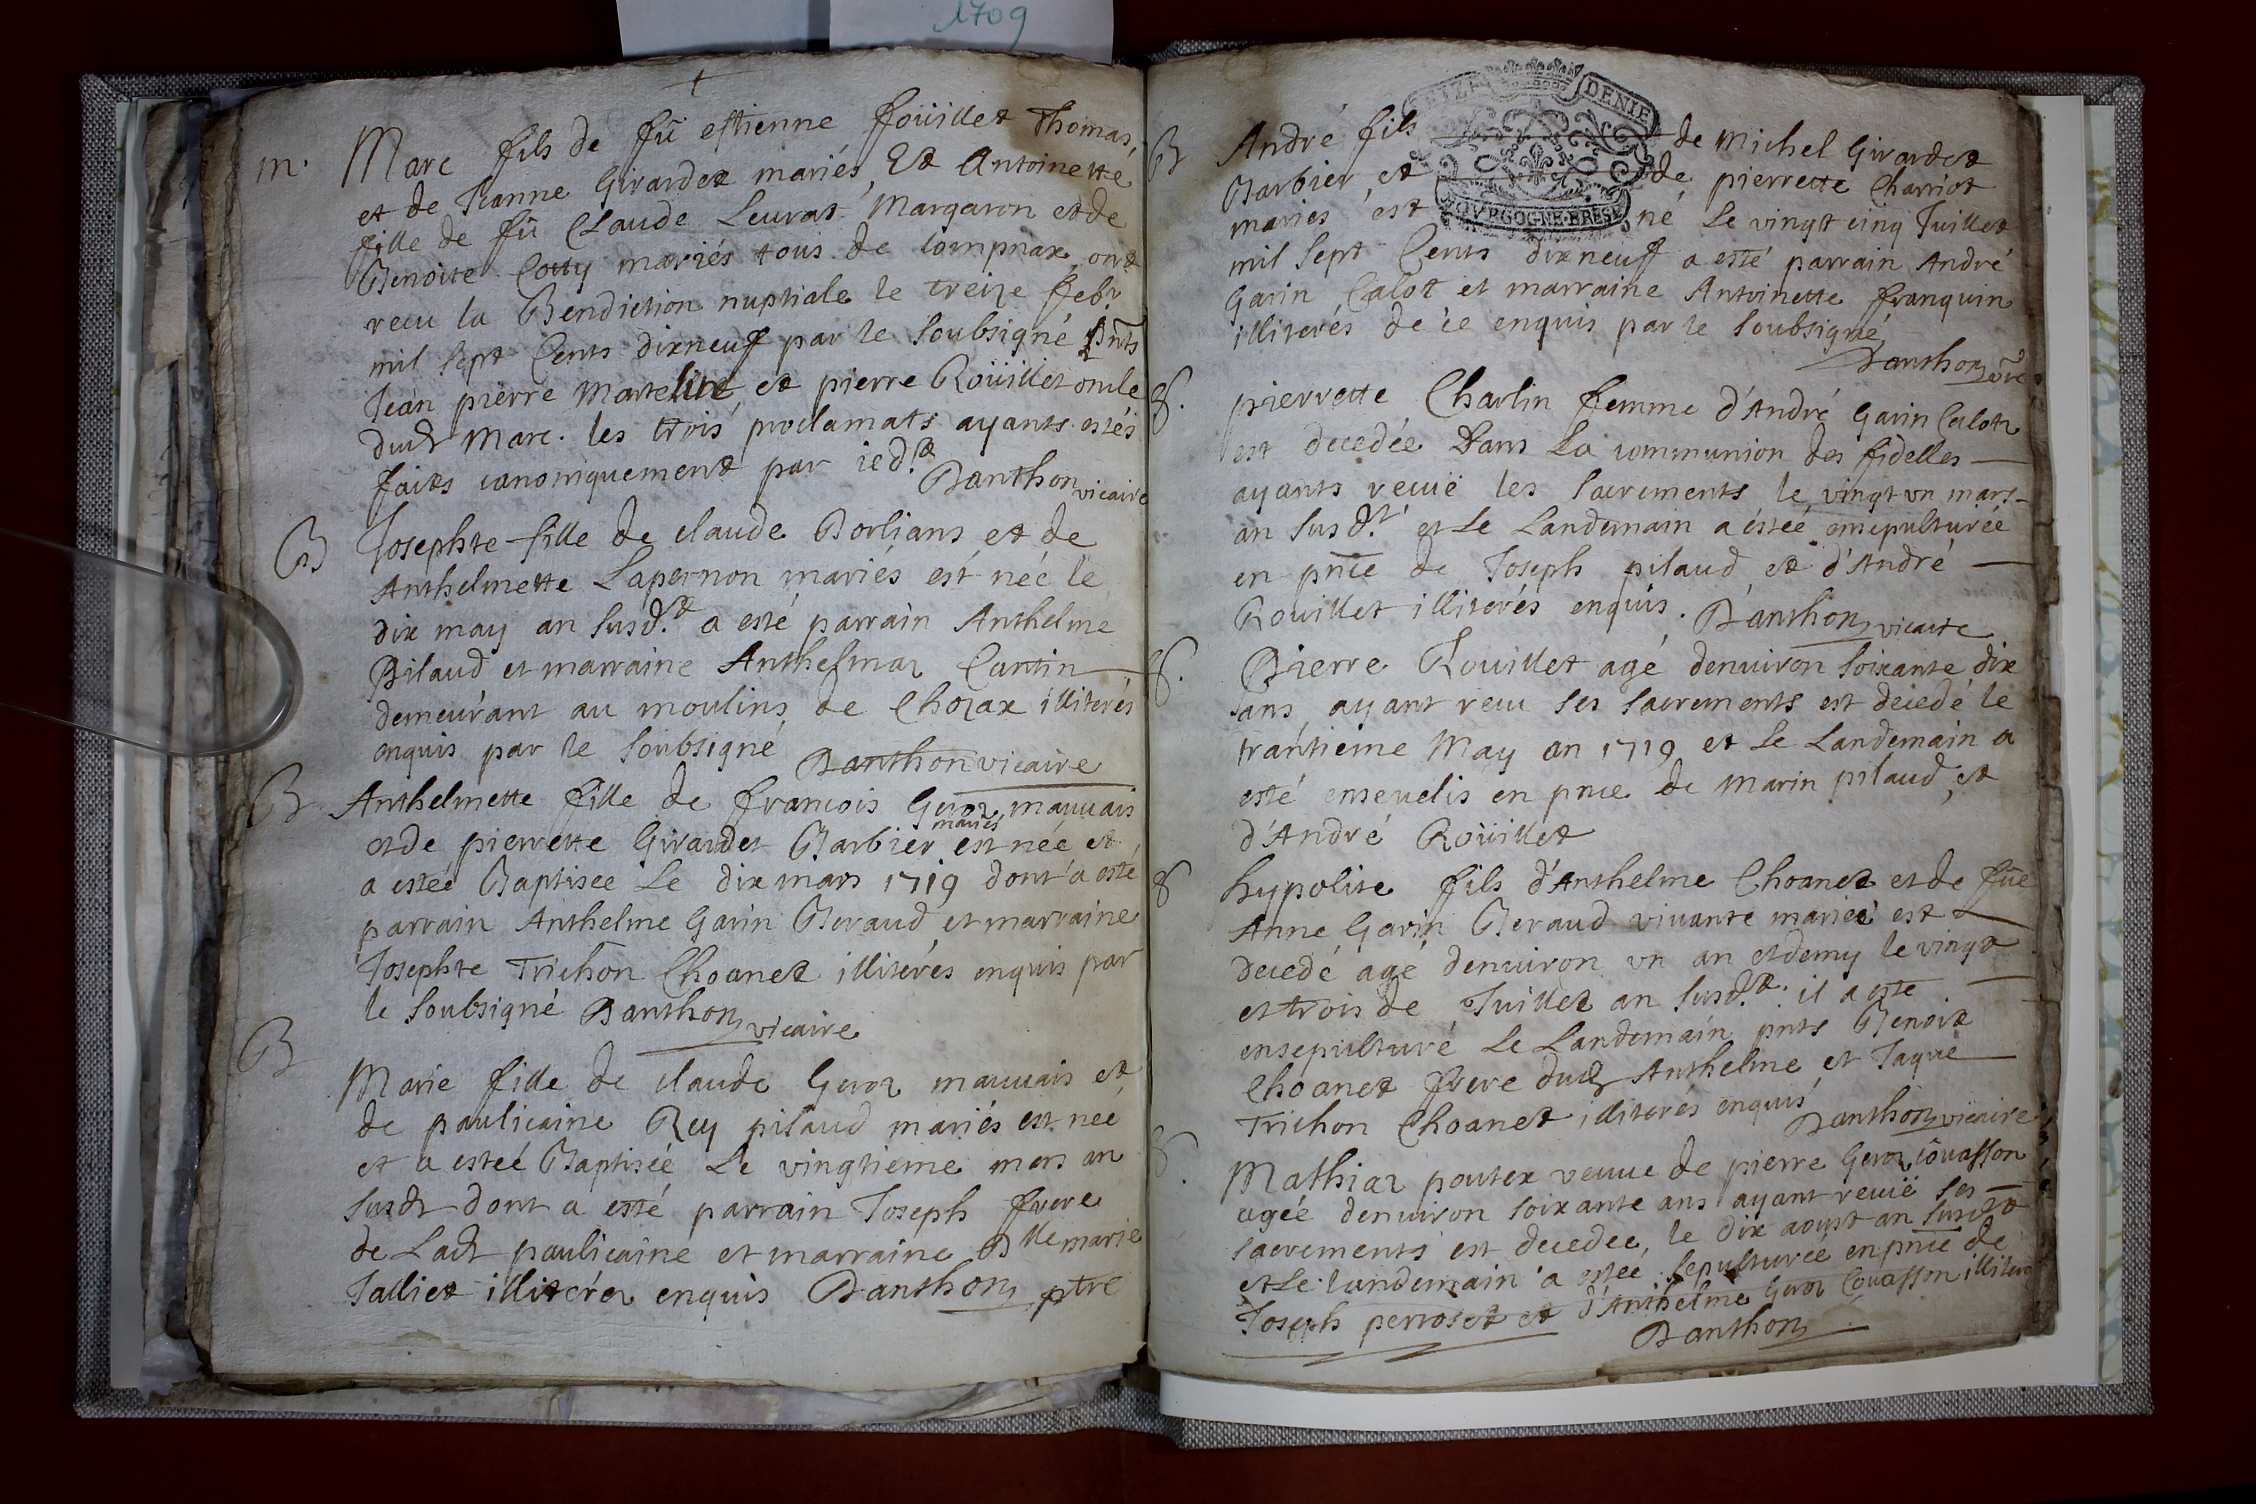 1709
m. Marc fils de fû estienne foüillet Thomas,
et de Jeanne Girardet mariés, Et Antoinette
fille de fû Claude Leurat Margaron et de
Benoite Cotty mariés tous de Lompnax ont
recu la Bendiction nuptiale le treize febr
mil sept Cents dixneuf par le soubsigné pnts
Jean pierre Martelin et pierre Roüillet oncle
dud Marc. les trois proclamats ayants estés
faits canoniquement par ied.t
Danthon vicaire
B Josephte fille de claude Borlians et de
Anthelmette Lapernon mariés est née le
dix may an susd.t a esté parrain Anthelme
Pilaud et marraine Anthelmaz Cantin
demeurant au moulins de Chozax illiterés
enquis par le soubsigné
Danthon vicaire
B Anthelmette fille de francois Geroz mauuais
mariés
et de pierrette Girardet Barbier est née et
a esteé Baptisee Le dix mars 1719 dont a esté
parrain Anthelme Garin Beraud et marraine
Josephte Trichon Choanet illiterés enquis par
le soubsigné Danthon vicaire
B Marie fille de claude Geroz mauuais et
de paulicaine Rey pilaud mariés est née
et a esteé Baptisée Le vingtieme mars an
susd dont a esté parrain Joseph frere
de Lad paulicaine et marraine Dlle marie
Talliet illiterez enquis Danthon ptre
SEIZE DENIE
BOVRGOGNE·BRESE
B André fils de Michel Girardet
Barbier et de pierrette Charriot
mariés est né Le vingt cinq Juillet
mil sept Cents dixneuf a esté parrain André
Garin Calot et marraine Antoinette franquin
illiterés de ce enquis par le soubsigné
Danthon vre
S. pierrette Charlin femme d'André Garin Calot
est decedée Dans La communion des fidelles
ayants recuë les sacrements le vingt vn mars
an susd.t et Le Landemain a éstée ensepulturée
en pnce de Joseph pilaud et d'André
Rouillet illiterés enquis. Danthon vicaire
S. Pierre Rouillet agé denuiron soixante dix
ans ayant recu ses sacrements est decedé le
trantieme May an 1719 et Le Landemain a
esté enseuelis en pnce de Marin pilaud et
d'André Roüillet
S hypolite fils d'Anthelme Choanet et de fûe
Anne Garin Beraud viuante mariée est
decedé agé denuiron vn an et demy le vingt
et trois de Juillet an susd.t il a esté
ensepulturé Le Landemain pnts Benoit
Choanet frere dud Anthelme et Jaque
Trichon Choanet illiterés enquis
Danthon vicaire
S. Mathiaz poutex veuue de pierre Geroz Couasson
agée denuiron soixante ans ayant recuë ses
sacrements est decedee le dix aoust an susd.t
et Le landemain a estée sepulturée en pnce de
Joseph perroset et d'Anthelme Geroz Couasson illiteré
Danthon